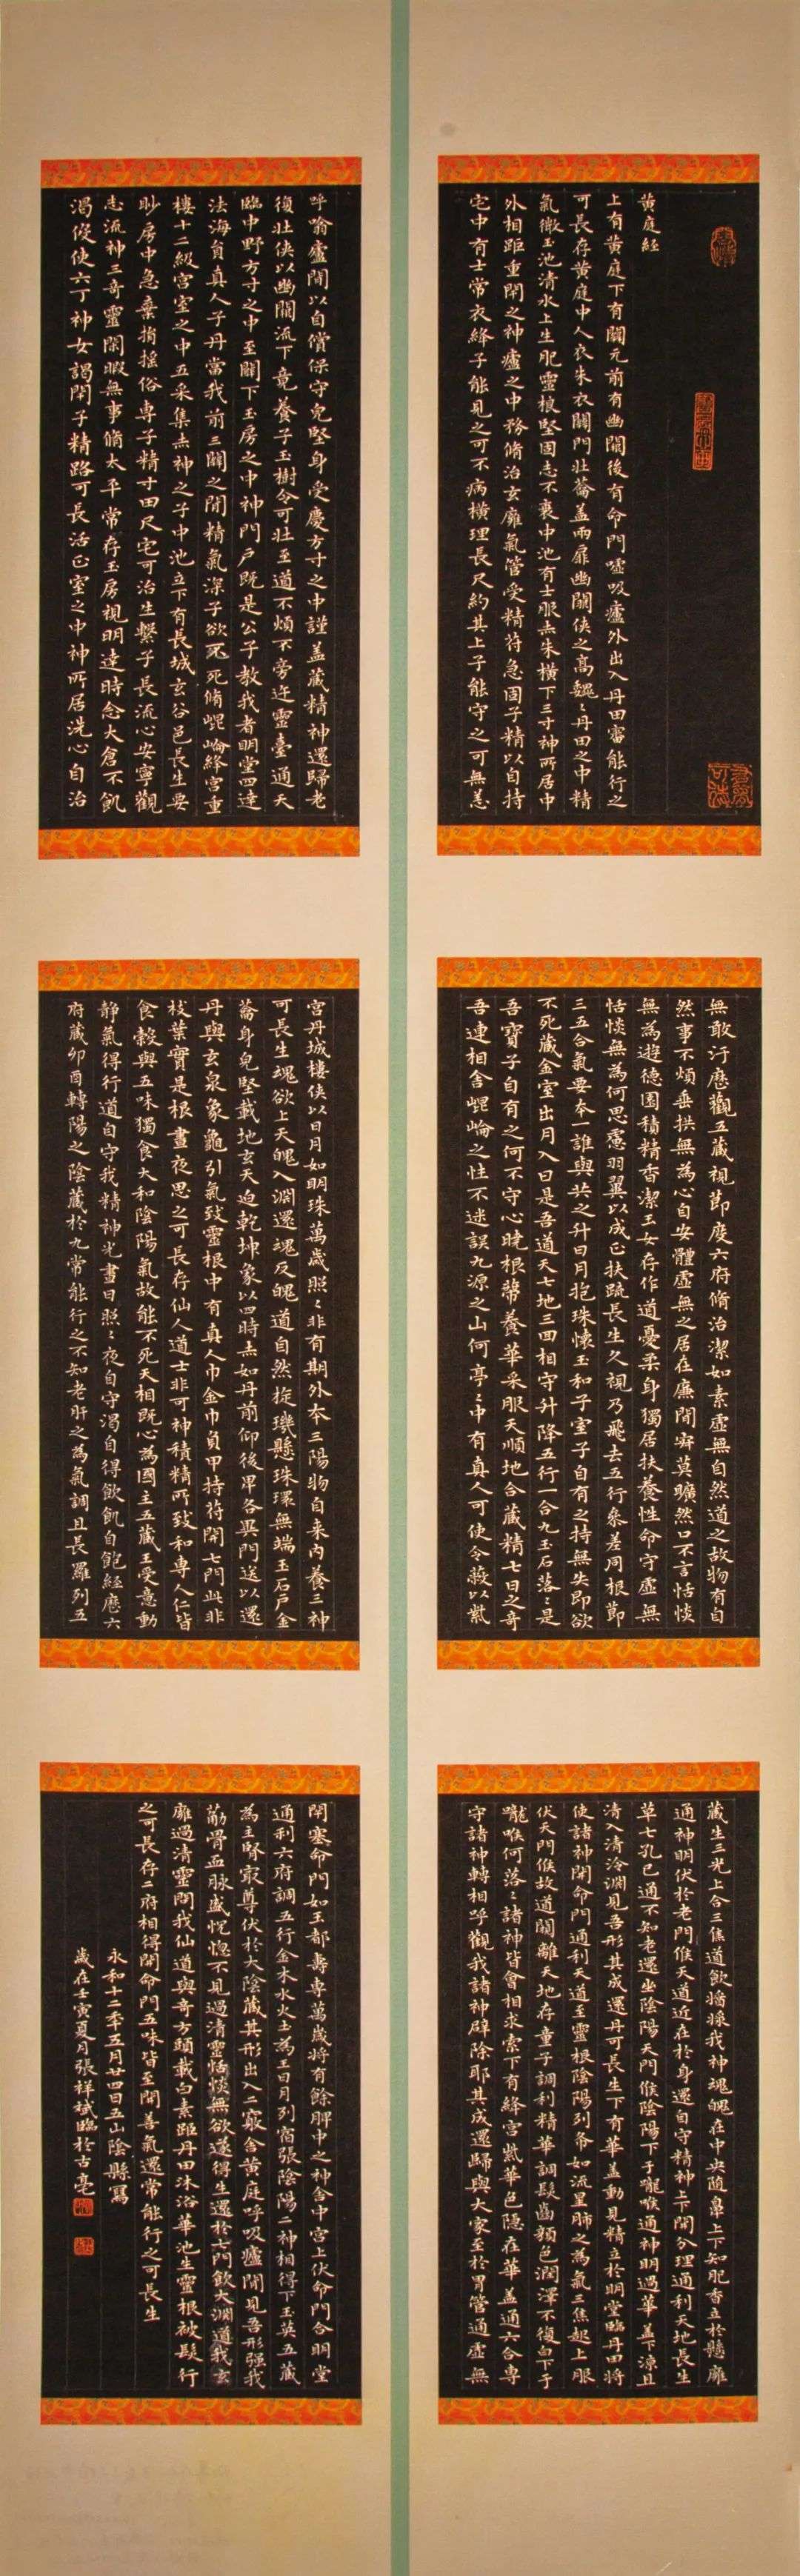 黃庭經
上有黃庭下有關元前有幽闕後有命門噓吸廬外出入丹田審能行之
可長存黃庭中人衣朱衣關門壯蘥蓋兩扉幽闕俠之高巍〻丹田之中精
氣徵玉池清水上生肥靈根堅固志不衰中池有士服赤朱橫下三寸神所居中
外相距重閉之神廬之中務脩治玄廱氣管受精符急固子精以自持
宅中有士常衣絳子能見之可不病橫理長尺約其上子能守之可無恙
呼噏廬間以自償保守完堅身受慶方寸之中謹蓋藏精神還歸老
復壯俠以幽闕流下竟養子玉樹令可壯至道不煩不旁迕靈臺通天
臨中野方寸之中至關下玉房之中神門戶既是公子教我者明堂四達
法海員真人子丹當我前三關之間精氣深子欲不死脩崐崘絳宮重
樓十二級宮室之中五采集赤神之子中池立下有長城玄谷邑長生要
眇房中急棄捐搖俗專子精寸田尺宅可治生繫子長流心安寧觀
志流神三奇靈閑暇無事脩太平常存玉房視明達時念大倉不飢
渴役使六丁神女謁閉子精路可長活正室之中神所居洗心自治
無敢汙歷觀五藏視節度六府脩治潔如素虛無自然道之故物有自
然事不煩垂拱無為心自安體虛無之居在廉間寂莫曠然口不言恬惔
無為遊德園積精香潔玉女存作道憂柔身獨居扶養性命守虛無
恬惔無為何思慮羽翼以成正扶疏長生久視乃飛去五行參差同根節
三五合氣要本一誰與共之升日月抱珠懷玉和子室子自有之持無失即欲
不死藏金室出月入日是吾道天七地三回相守升降五行一合九玉石落〻是
吾寶子自有之何不守心曉根蔕養華采服天順地合藏精七日之奇
吾連相舍崐崘之性不迷誤九源之山何亭〻中有真人可使令蔽以紫
宮丹城樓俠以日月如明珠萬歲照〻非有期外本三陽物自来內養三神
可長生魂欲上天魄入淵還魂反魄道自然旋璣懸珠環無端玉石戶金
蘥身完堅載地玄天迫乾坤象以四時赤如丹前仰後卑各異門送以還
丹與玄泉象龜引氣致靈根中有真人巾金巾負甲持符開七門此非
枝葉實是根晝夜思之可長存仙人道士非可神積精所致和專人仁皆
食穀與五味獨食大和陰陽氣故能不死天相既心為國主五藏王受意動
静氣得行道自守我精神光晝日照〻夜自守渴自得飲飢自飽經歷六
府藏卯酉轉陽之陰藏於九常能行之不知老肝之為氣調且長羅列五
藏生三光上合三焦道飲醬掾我神魂魄在中央随鼻上下知肥香立於懸廱
通神明伏於老門候天道近在於身還自守精神上下開分理通利天地長生
草七孔已通不知老還坐陰陽天門候陰陽下于嚨喉通神明過華蓋下涼且
清入清泠淵見吾形其成還丹可長生下有華蓋動見精立於明堂臨丹田将
使諸神開命門通利天道至靈根陰陽列布如流星肺之為氣三焦起上服
伏天門候故道闚離天地存童子調利精華調髮齒顏色潤澤不復白下于
嚨喉何落〻諸神皆會相求索下有絳宮紫華色隱在華蓋通六合專
守諸神轉相呼觀我諸神辟除耶其成還歸與大家至於胃管通虛無
閉塞命門如玉都壽專萬歲将有餘脾中之神舍中宮上伏命門合明堂
通利六府調五行金木水火土為王日月列宿張陰陽二神相得下玉英五藏
為主腎最尊伏於大陰藏其形出入二竅舍黃庭呼吸廬間見吾形强我
茄骨血脉盛怳惚不見過清靈恬惔無欲遂得生還於七門飲大淵道我玄
廱過清靈問我仙道與奇方頭載白素距丹田沐浴華池生靈根被髮行
之可長存二府相得開命門五味皆至開善氣還常能行之可長生
永和十二年五月廿四日五山陰縣寫
歲在壬寅夏月張祥斌臨於古亳